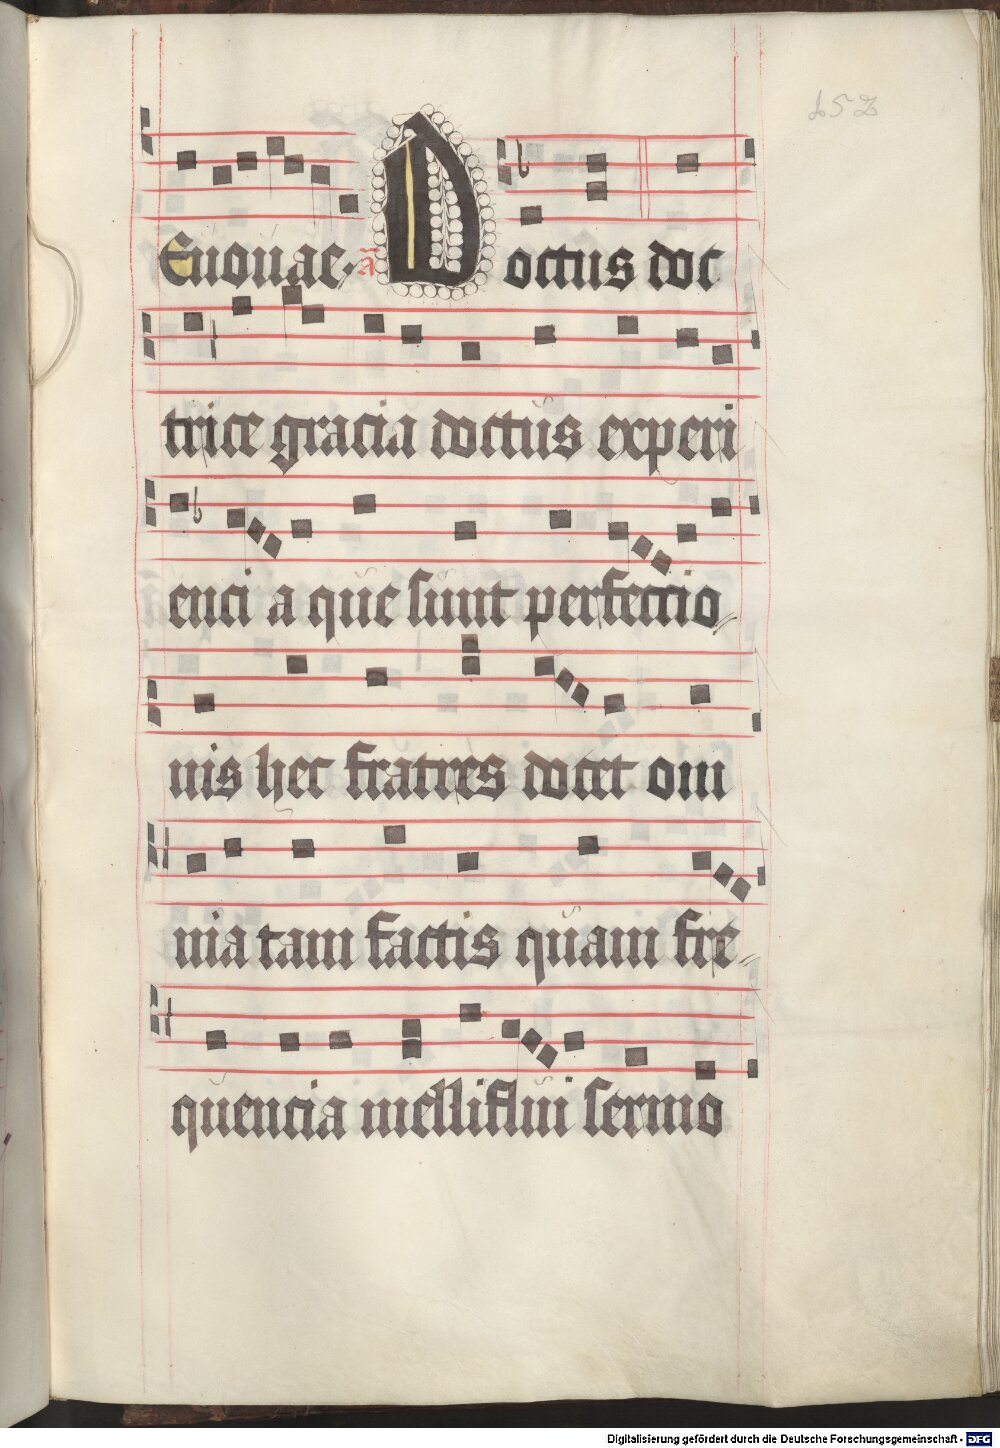 153
Euouae. a Doctus doc
trice gracia doctus experi
enci a que sunt perfectio
nis hec fratres docet om
nia tam factis quam fre
quencia melliflui sermo
Digitalisierung gefördert durch die Deutsche Forschungsgemeinschaft - DFG